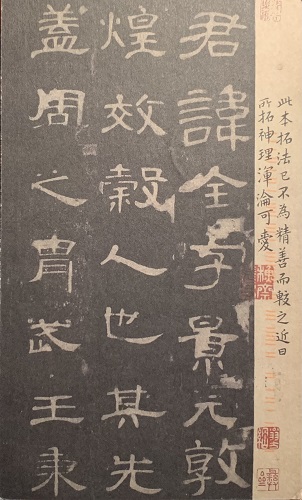 此本拓法已不為精善而較之近日
所拓神理渾淪可愛
君諱全字景完敦
煌效穀人也其先
蓋周之胄武王秉